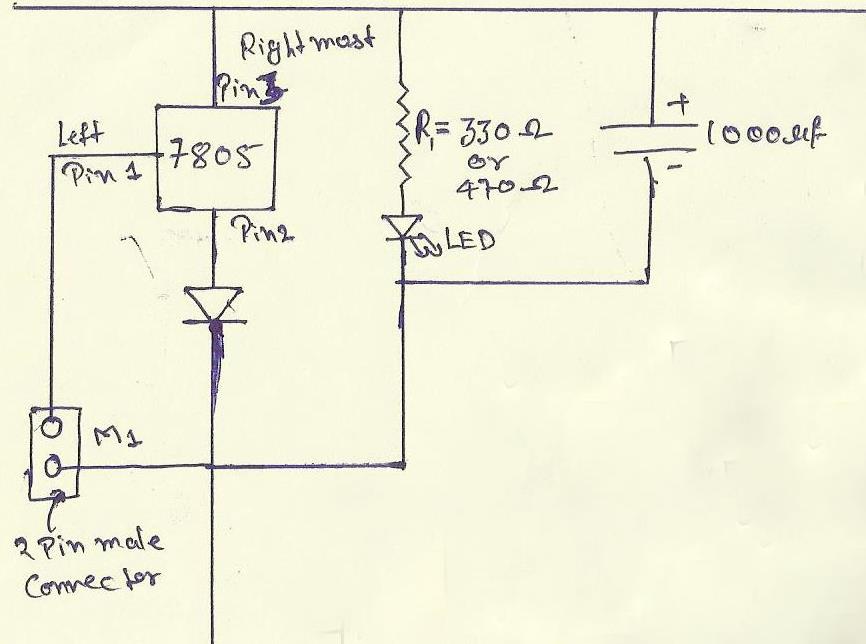 Rightmost
Pin3
Left
Pin 1
7805
Pin2
R1= 330Ω
or
470Ω
LED
+
1000uf
-
M1
2 Pin male
Connector